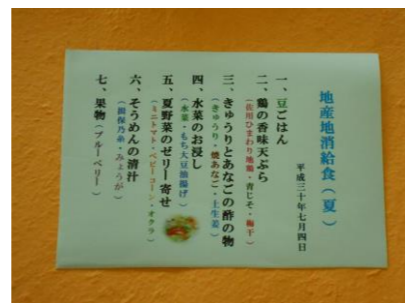 地産地消給食（夏）
平成三十年七月四日
一、豆ごはん
二、鶏の香味天ぷら
（佐用ひまわり地鶏・青じそ・梅干）
三、きゅうりとあなごの酢の物
（きゅうり・焼あなご・土生姜）
四、水菜のお浸し
（水菜・もち大豆油揚げ）
五、夏野菜のゼリー寄せ
（ミニトマト・ベビーコーン・オクラ）
六、そうめんの清汁
（揖保乃糸・みょうが）
七、果物（ブルーベリー）